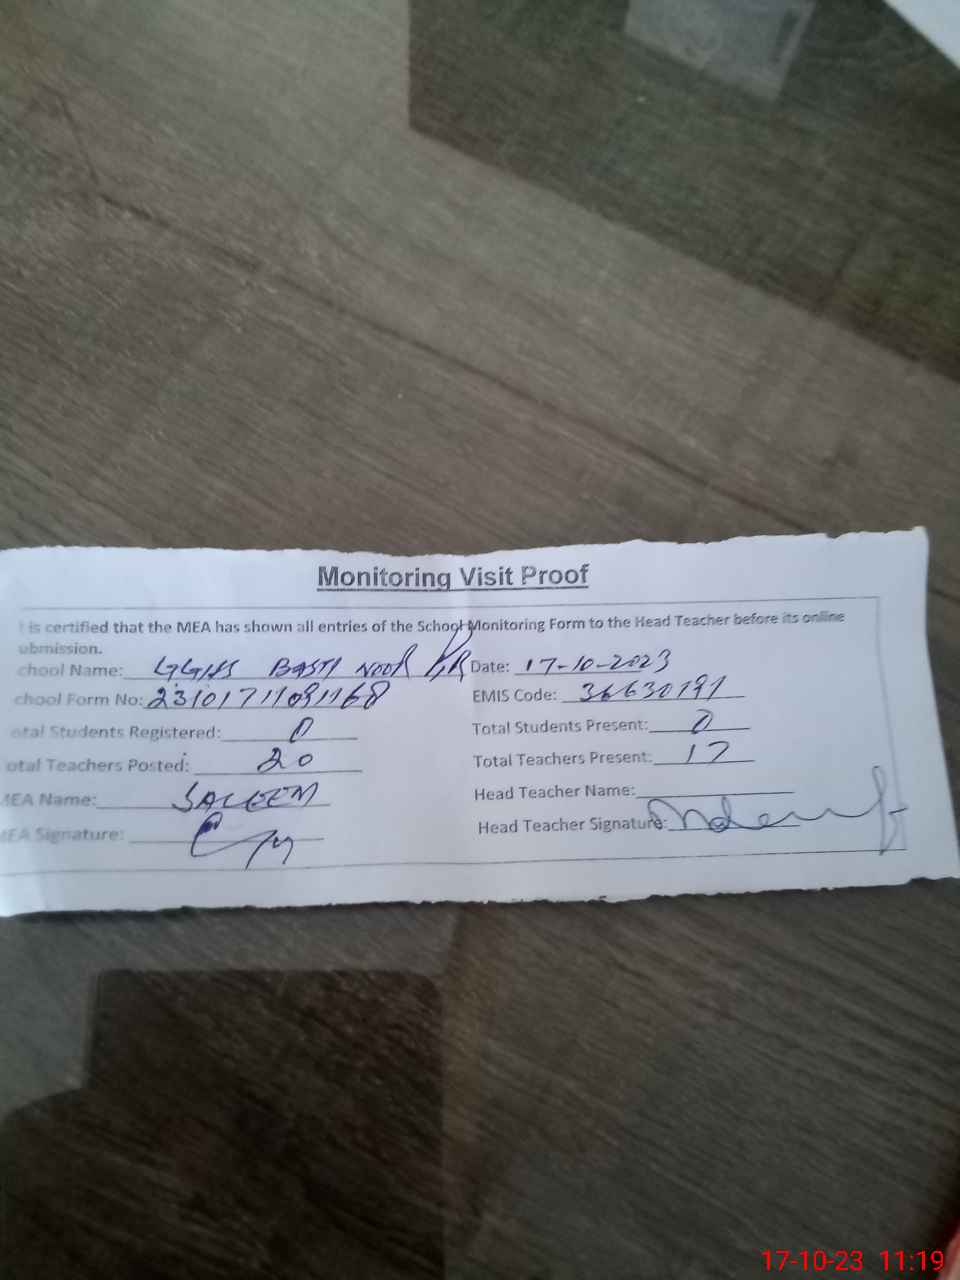 Monitoring Visit Proof
is certified that the MEA has shown all entries of the School Monitoring Form to the Head Teacher before its online
ubmission.
chool Name: GGHS BASTI NOOR Date: 17-10-2023
chool Form No: 23101711091168 EMIS Code: 36630191
otal Students Registered: 0 Total Students Present: 0
otal Teachers Posted: 20 Total Teachers Present: 17
MEA Name: SALEEM Head Teacher Name:
MEA Signature: Head Teacher Signature:
17-10-23 11:19